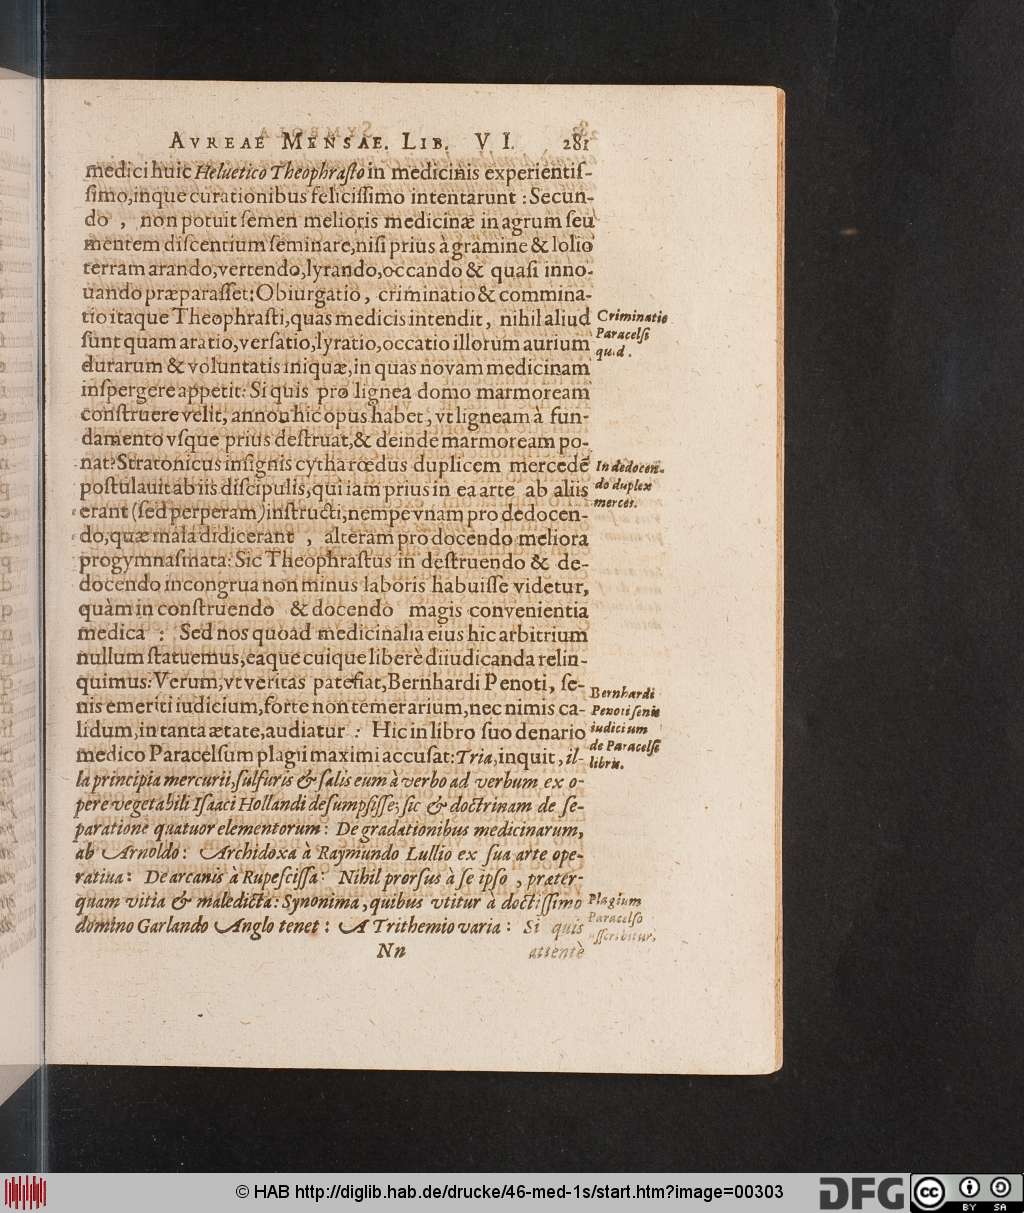 AVREAE MENSAE. LIB. VI. 281
medici huic Heluetico Theophraſto in medicinis experientiſ-
ſimo, inque curationibus feliciſſimo intentarunt : Secun-
do , non potuit ſemen melioris medicinæ in agrum ſeu
mentem diſcentium ſeminare, niſi prius à gramine & lolio
terram arando, vertendo, lyrando, occando & quaſi inno-
uando præparaſſet: Obiurgatio, criminatio & commina-
tio itaque Theophraſti, quas medicis intendit, nihil aliud
ſunt quam aratio, verſatio, lyratio, occatio illorum aurium
durarum & voluntatis iniquæ, in quas novam medicinam
inſpergere appetit: Si quis pro lignea domo marmoream
conſtruere velit, annon hic opus habet, vt ligneam à fun-
damento vſque prius deſtruat, & deinde marmoream po-
nat? Stratonicus inſignis cytharœdus duplicem mercedē
poſtulauit ab iis diſcipulis, qui iam prius in ea arte ab aliis
erant (ſed perperam) inſtructi, nempe vnam pro dedocen-
do, quæ mala didicerant , alteram pro docendo meliora
progymnaſmata: Sic Theophraſtus in deſtruendo & de-
docendo incongrua non minus laboris habuiſſe videtur,
quàm in conſtruendo & docendo magis convenientia
medica : Sed nos quoad medicinalia eius hic arbitrium
nullum ſtatuemus, eaque cuique liberè diiudicanda relin-
quimus: Verum, vt veritas patefiat, Bernhardi Penoti, ſe-
nis emeriti iudicium, forte non temerarium, nec nimis ca-
lidum, in tanta ætate, audiatur : Hic in libro ſuo denario
medico Paracelſum plagii maximi accuſat: Tria, inquit, il-
la principia mercurii, ſulfuris & ſalis eum à verbo ad verbum ex o-
pere vegetabili Iſaaci Hollandi deſumpſiſſe; ſic & doctrinam de ſe-
paratione quatuor elementorum : De gradationibus medicinarum,
ab Arnoldo : Archidoxa à Raymundo Lullio ex ſua arte ope-
ratiua : De arcanis à Rupeſciſſa : Nihil prorſus à ſe ipſo , præter-
quam vitia & maledicta : Synonima, quibus vtitur à doctiſſimo
domino Garlando Anglo tenet : A Trithemio varia : Si quis
Nn attentè
Criminatio
Paracelſi
quid.
In dedocen-
do duplex
merces.
Bernhardi
Penoti ſenis
iudicium
de Paracelſi
libris.
Plagium
Paracelſo
aſſcribitur.
© HAB http://diglib.hab.de/drucke/46-med-1s/start.htm?image=00303
DFG
cc
BY SA